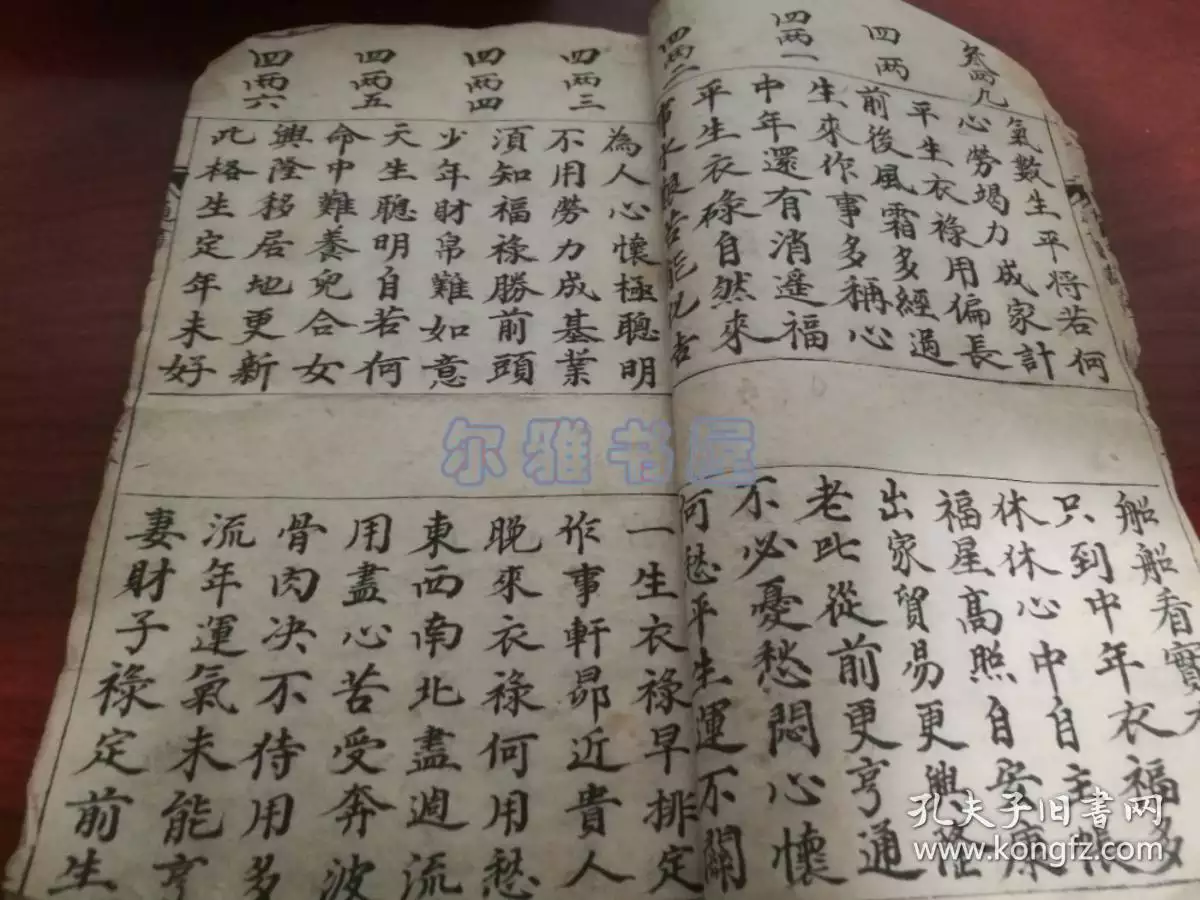 叁两九
四两
四两一
四两二
氣數生平將若何
心勞竭力成家計
平生衣祿用偏長
前後風霜多經過
生來作事多稱心
中年還有消遙福
平生衣碌自然來
苦能
船船看寶
只到中年衣福多
休休心中自主帳
福星高照自安康
出家貿易更興隆
老比從前更亨通
不必憂愁悶心懷
何愁平生運不關
四两三
四两四
四两五
四两六
為人心懷極聰明
不用勞力成基業
須知福祿勝前頭
少年財帛難如意
天生聰明自若何
命中難養兒合女
興隆移居地更新
此格生定年未好
一生衣祿早排定
作事軒昴近貴人
晚來衣祿何用愁
東西南北盡週流
用盡心苦受奔波
骨肉决不待用多
流年運氣未能亨
妻財子祿定前生
尔雅书屋
孔夫子旧书网
www.kongfz.com